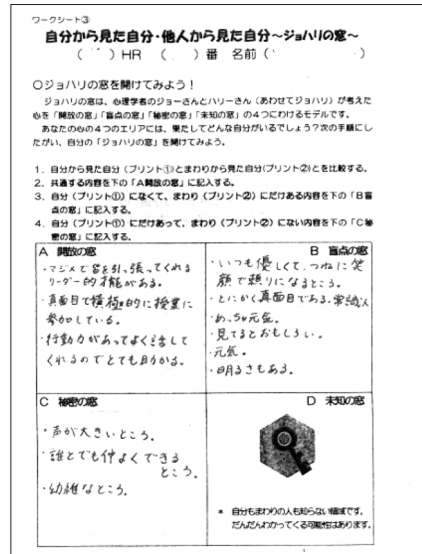 ワークシート③
自分から見た自分・他人から見た自分～ジョハリの窓～
（　　）HR　（　　）番　名前（　　　　　　　）
○ジョハリの窓を開けてみよう！
ジョハリの窓は、心理学者のジョーさんとハリーさん（あわせてジョハリ）が考えた
心を「開放の窓」「盲点の窓」「秘密の窓」「未知の窓」の４つにわけるモデルです。
あなたの心の４つのエリアには、果たしてどんな自分がいるでしょう？次の手順にし
たがい、自分の「ジョハリの窓」を開けてみよう。
1．自分から見た自分（プリント①）とまわりから見た自分（プリント②）とを比較する。
2．共通する内容を下の「Ａ開放の窓」に記入する。
3．自分（プリント①）になくて、まわり（プリント②）にだけある内容を下の「Ｂ盲
点の窓」に記入する。
4．自分（プリント①）にだけあって、まわり（プリント②）にない内容を下の「Ｃ秘
密の窓」に記入する。
A　開放の窓
・マジメで皆を引っ張ってくれる
リーダー的才能がある。
・真面目で積極的に授業に
参加している。
・行動力があってよく話して
くれるのでとても助かる。
B　盲点の窓
・いつも優しくて、つねに笑
顔で頼りになるところ。
・とにかく真面目である。常識人
・めっちゃ元気。
・見てるとおもしろい。
・元気。
・明るさもある。
C　秘密の窓
・声が大きいところ。
・誰とでも仲よくできる
ところ。
・幼稚なところ。
D　未知の窓
＊　自分もまわりの人も知らない領域です。
だんだんわかってくる可能性はあります。